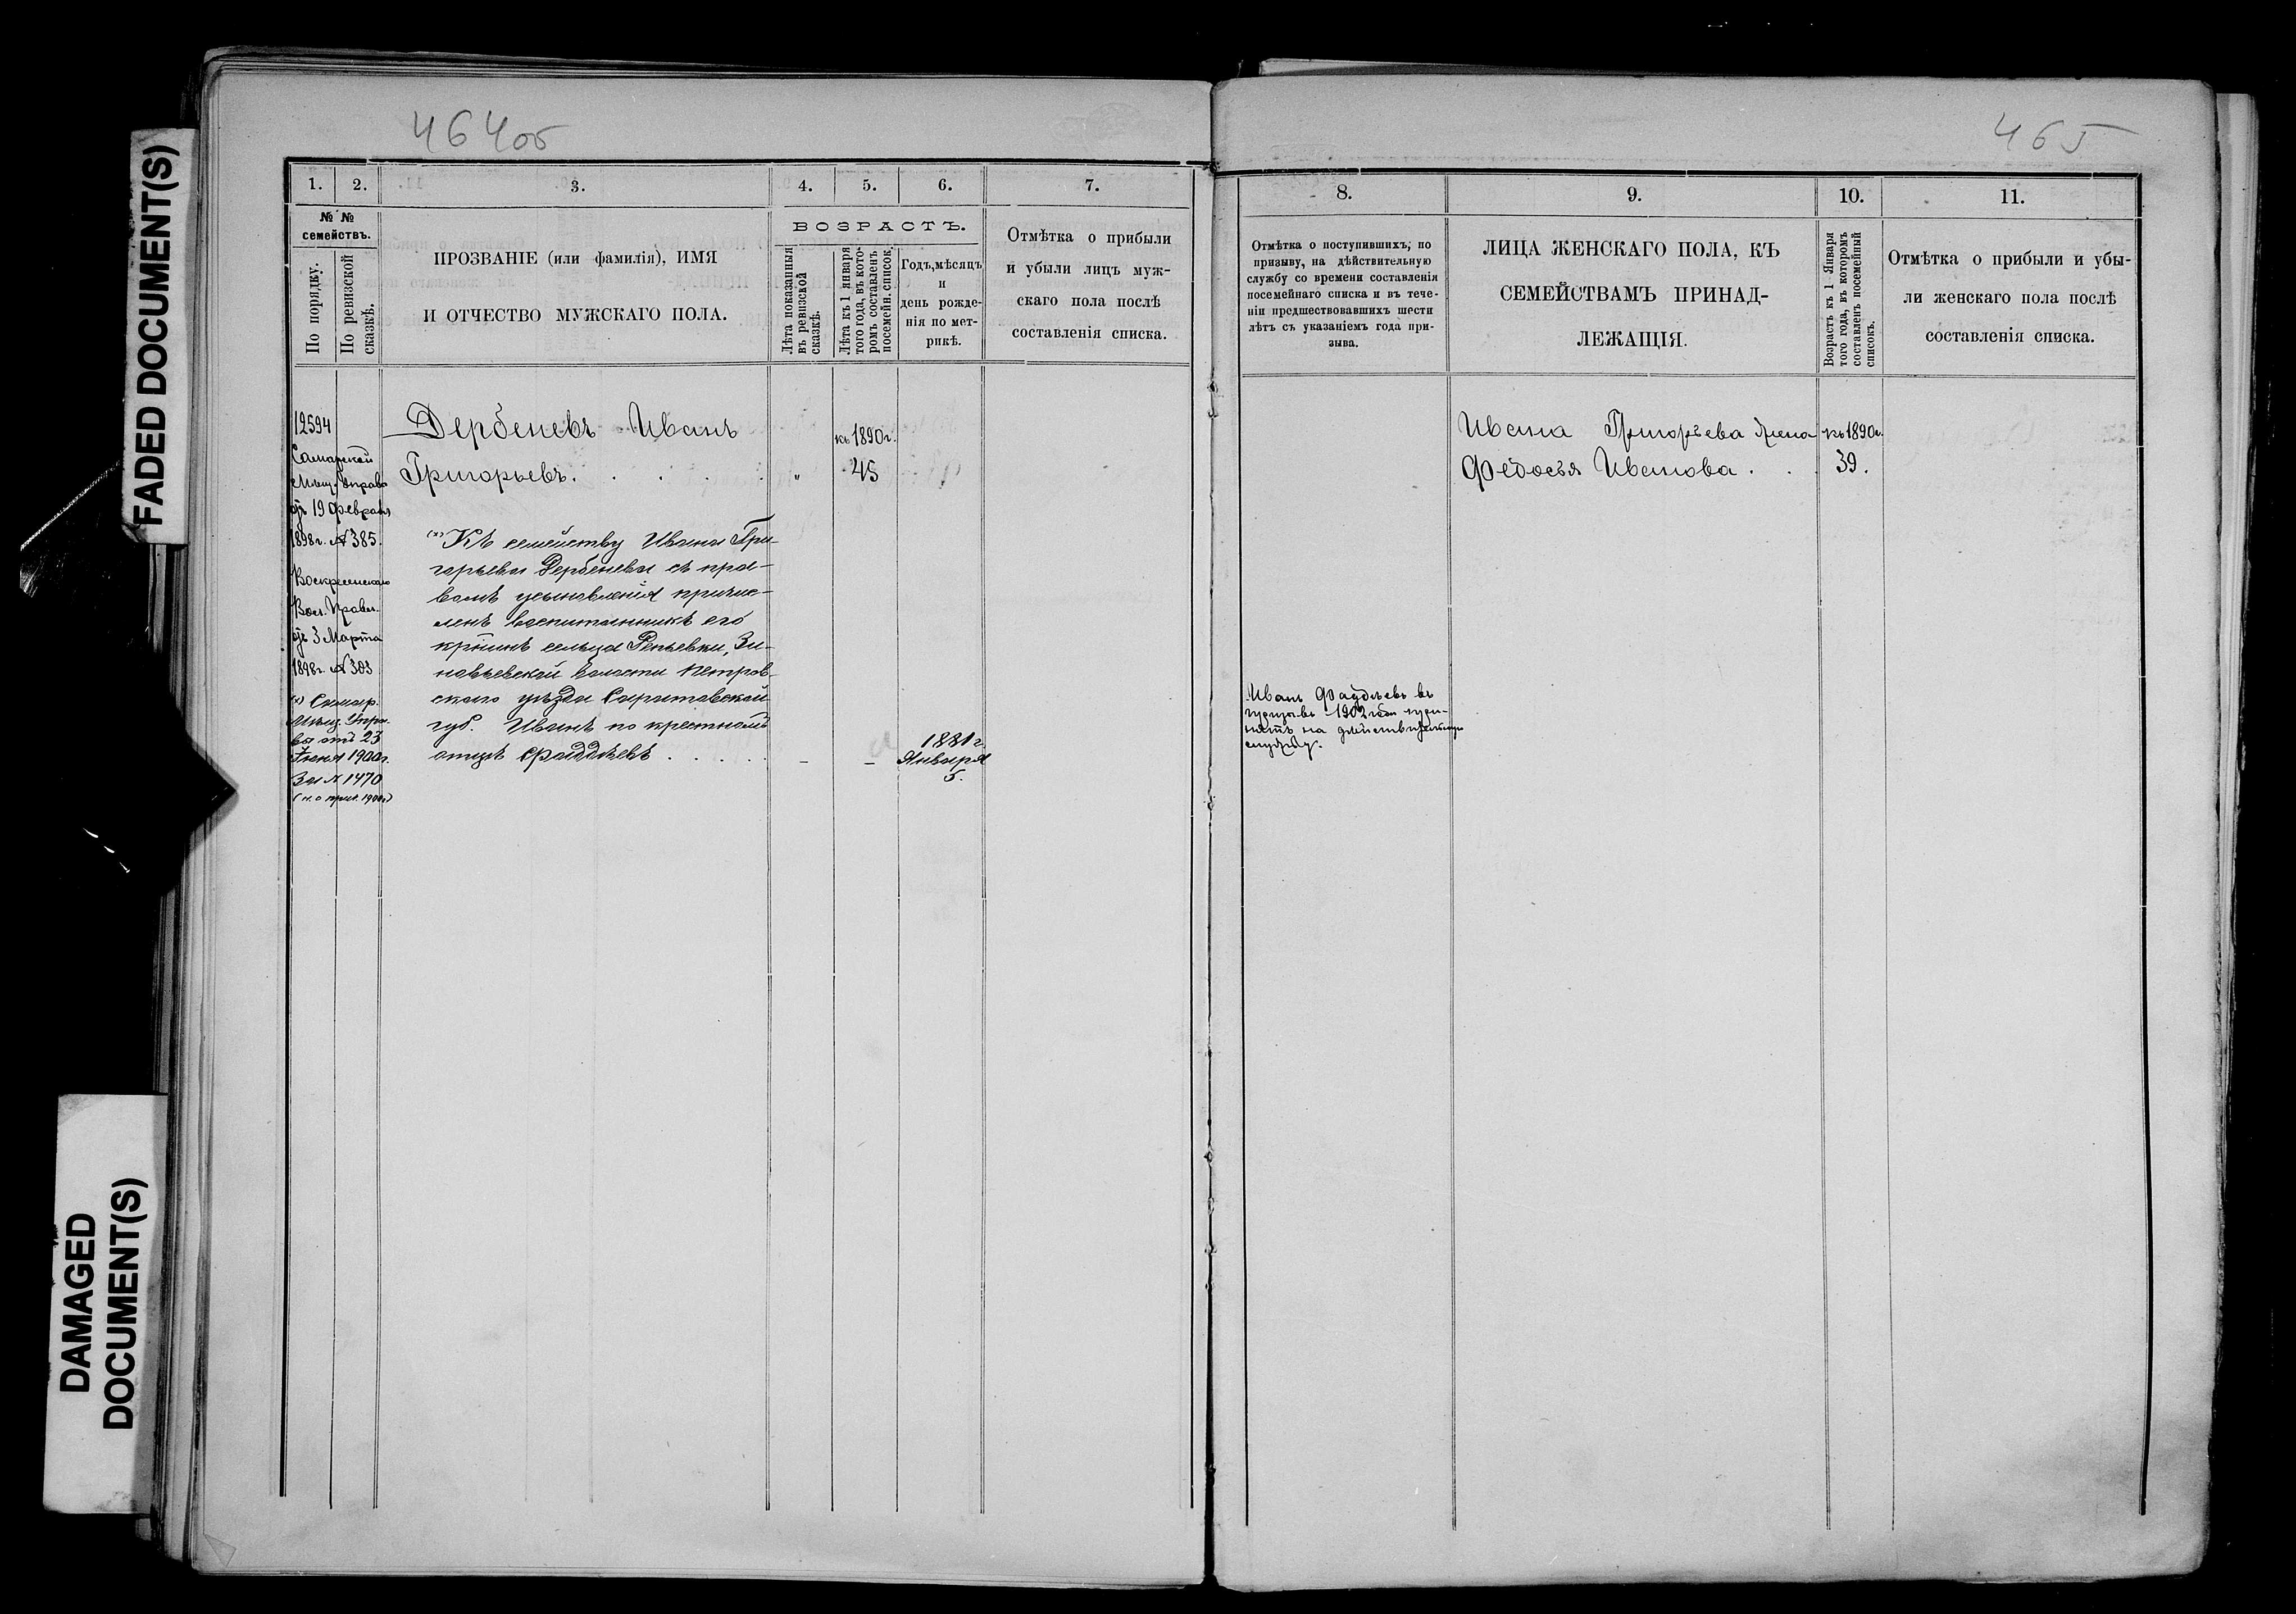 FADED DOCUMENT(S)
DAMAGED
DOCUMENT(S)
464об
1.
2.
3.
4.
5.
6.
7.
№ №
семействъ.
По порядку.
По ревизской
сказкѣ.
ПРОЗВАНІЕ (или фамилія), ИМЯ
И ОТЧЕСТВО МУЖСКАГО ПОЛА.
ВОЗРАСТЪ.
Лѣта показанныя
въ ревизской
сказкѣ.
Лѣта къ 1 января
того года, въ кото-
ромъ составленъ
посемейн. список.
Годъ, мѣсяцъ
и
день рожде-
нія по мет-
рикѣ.
Отмѣтка о прибыли
и убыли лицъ муж-
скаго пола послѣ
составленія списка.
12594
Самарской
Мѣщ. Управы
отъ 19 Февраля
1898г. № 385.
Воскресенскаго
Вол. Правл.
отъ 3 Марта
1898г. № 303
(х) Самар.
Мѣщ. Упра-
вы отъ 23
Іюня 1900г.
За № 1470
Дербеневъ Иванъ
Григорьевъ. . . . .
"
къ 1890г.
45
(х) Къ семейству Ивана Гри-
горьева Дербенева съ пра-
вомъ усыновленія причис-
ленъ воспитанникъ его
кр-нинъ сельца Репьевки, Зи-
новьевской волости Петров-
скаго уѣзда Саратовской
губ. Иванъ по крестному
отцу Фаддѣевъ . . . . .
–
–
1881 г.
Января
5.
465
8.
9.
10.
11.
Отмѣтка о поступившихъ, по
призыву, на дѣйствительную
службу со времени составленія
посемейнаго списка и въ тече-
ніи предшествовавшихъ шести
лѣтъ съ указаніемъ года при-
зыва.
ЛИЦА ЖЕНСКАГО ПОЛА, КЪ
СЕМЕЙСТВАМЪ ПРИНАД-
ЛЕЖАЩІЯ.
Возрастъ къ 1 Января
того года, въ которомъ
составленъ посемейный
списокъ.
Отмѣтка о прибыли и убы-
ли женскаго пола послѣ
составленія списка.
Ивана Григорьева жена
къ 1890г.
Федосья Иванова . . .
39.
Иванъ Фаддѣевъ въ
призывъ 1902 года при-
нятъ на дѣйствительную
службу.